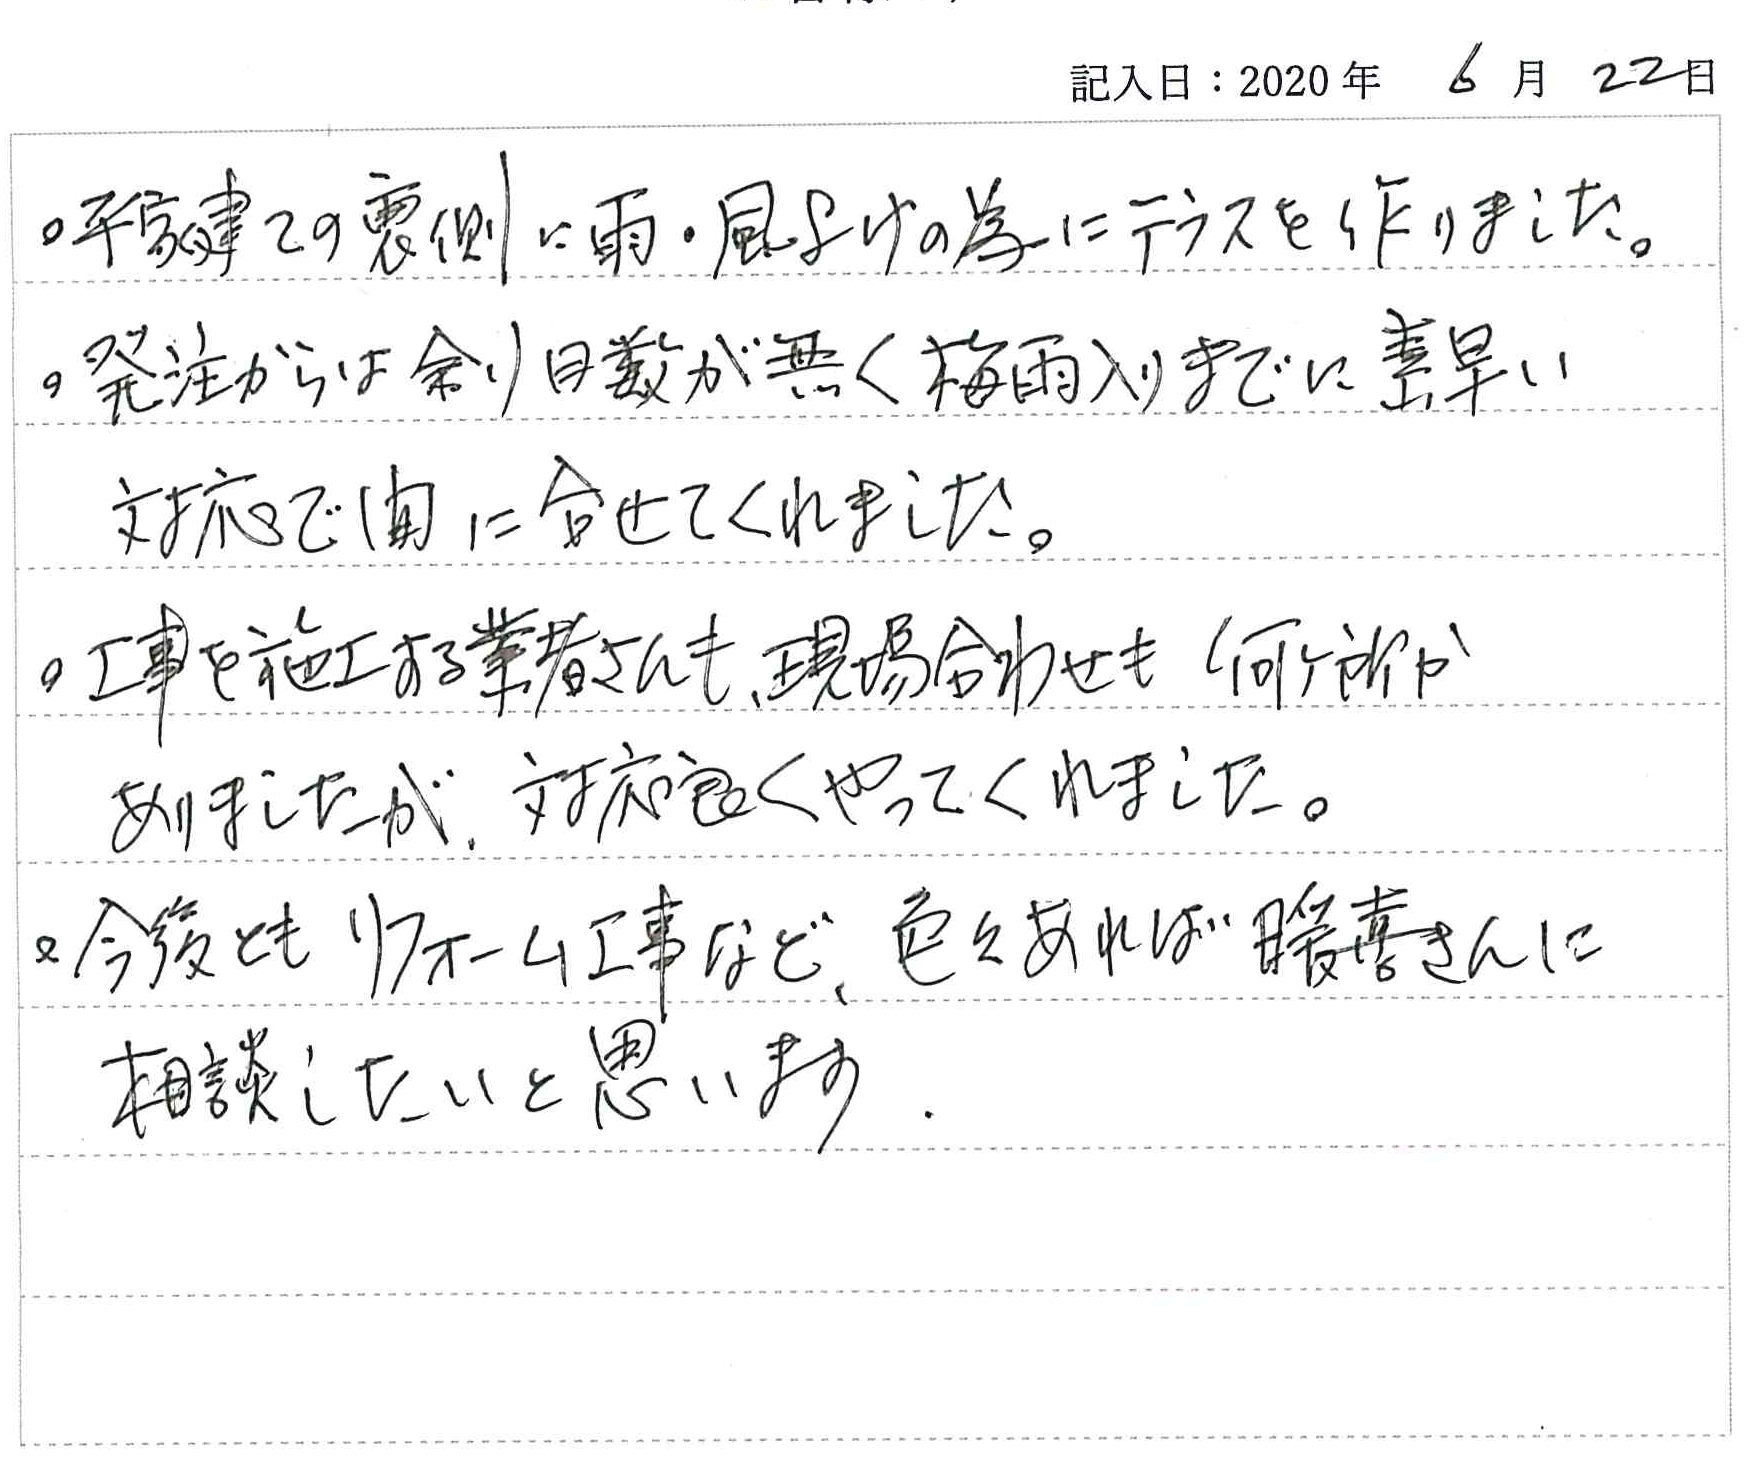 記入日：2020年 6月 22日
。平家建ての裏側に雨・風よけの為にテラスを作りました。
。発注からは余り日数が無く梅雨入りまでに素早い
対応で間に合せてくれました。
。工事を施工する業者さんも、現場合わせも何ヶ所か
ありましたが、対応良くやってくれました。
。今後ともリフォーム工事など、色々あれば暖喜さんに
相談したいと思います.